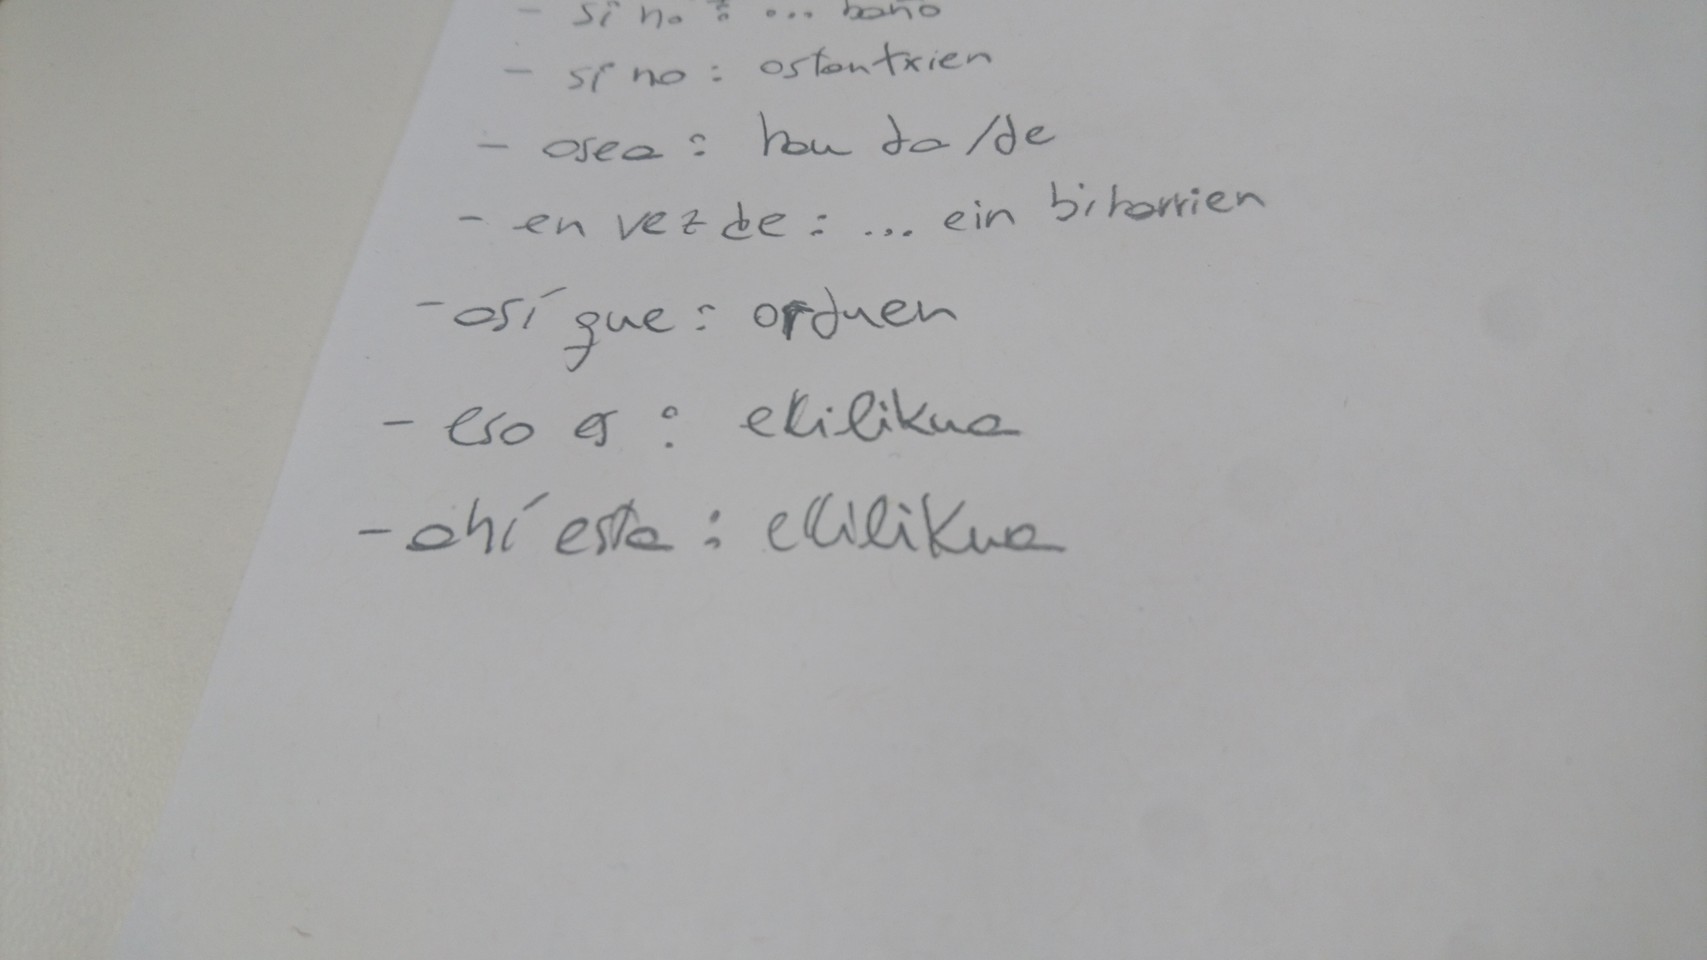 - si no : ... baño
- si no : ostantxien
- osea : hau da/de
- en vez de : ... ein biharrien
- así que : orduen
- eso es : ekilikua
- ahí esta : ekilikua